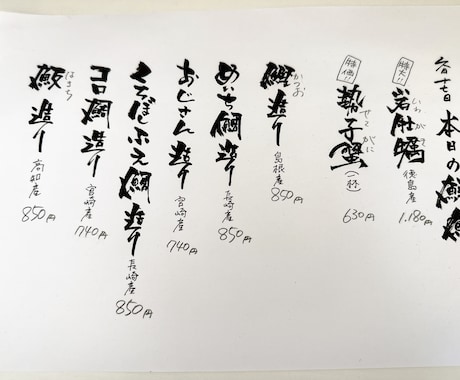 本日の鮮魚
特大!! 岩牡蠣 いわがき 徳島産 1,180円
特価!! 勢子蟹 せこがに (一杯) 630円
鰹造り かつお 島根産 850円
めいち鯛造り 長崎産 850円
おじさん造り 宮崎産 740円
くろぼしふえ鯛造り 長崎産 850円
コロ鯛造り 宮崎産 740円
魬造り はまち 高知産 850円